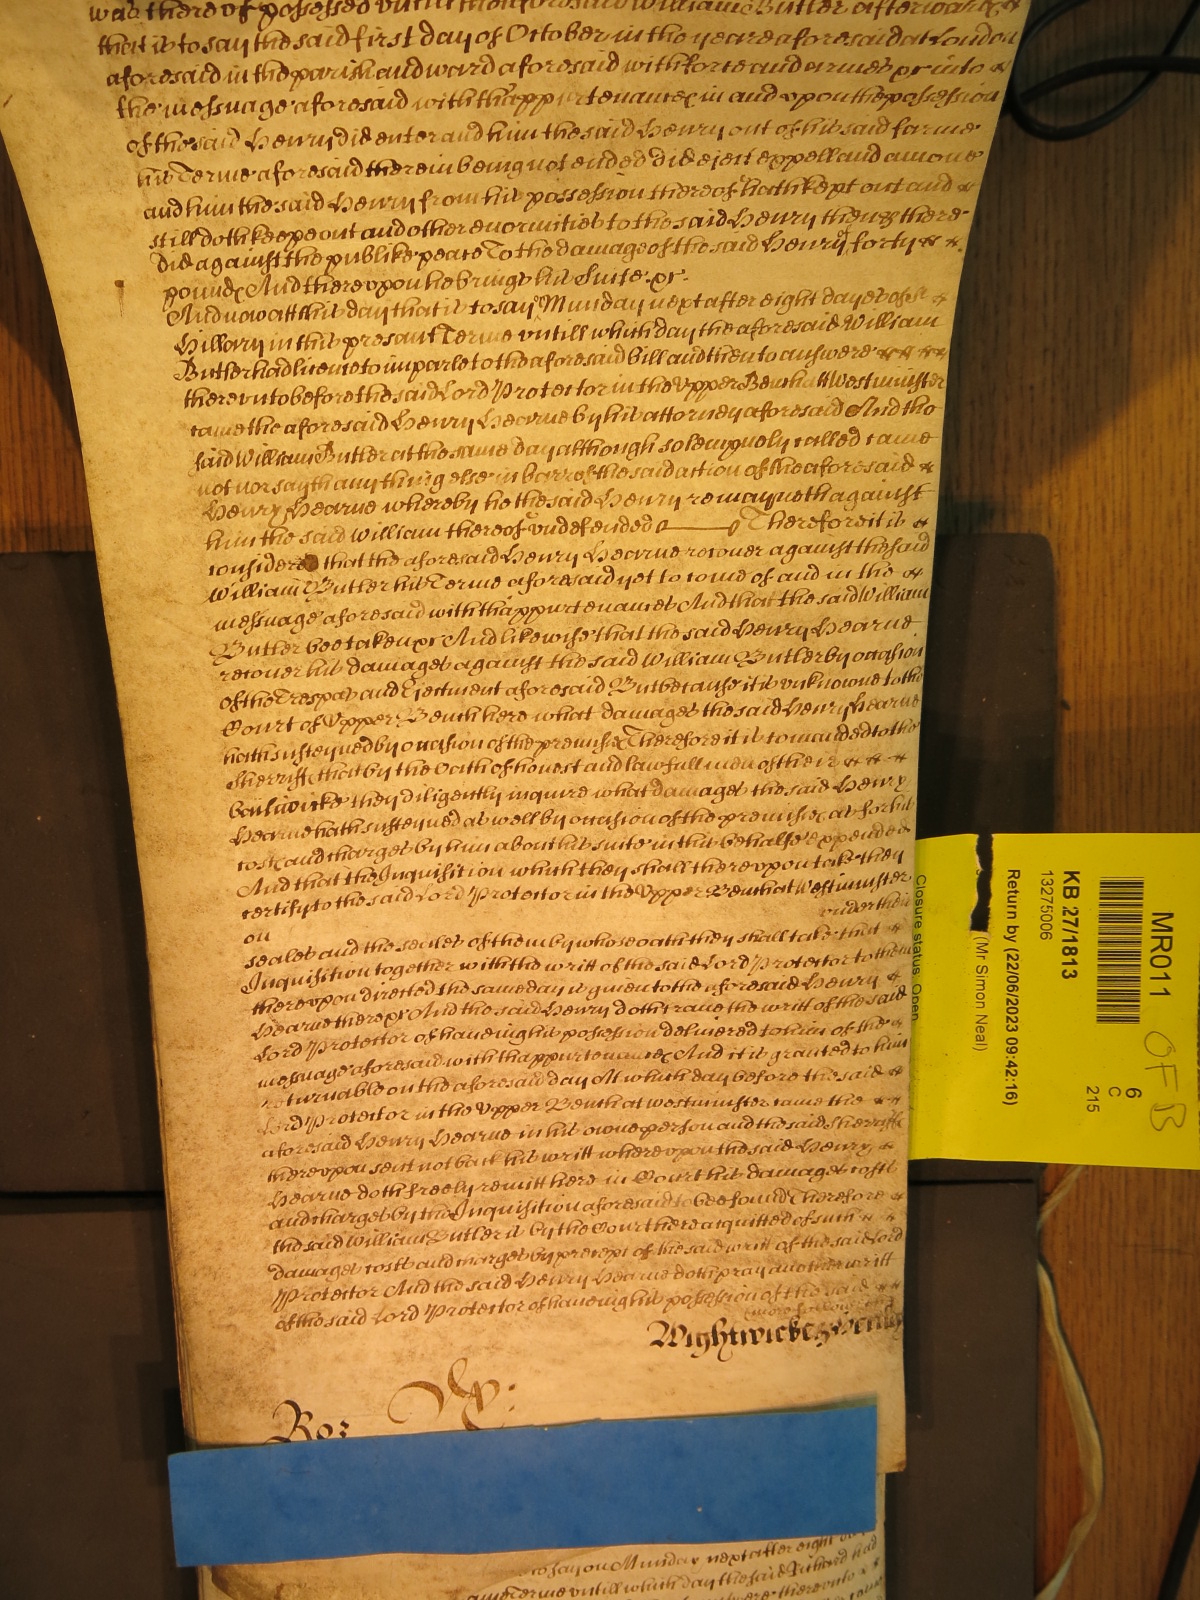 was thereof possessed untill the aforesaid William Butler afterwards
that is to say the said first day of October in the yeare aforesaid at London
aforesaid in the parish and ward aforesaid with force and armes &c into
the messuage aforesaid with thappurtenances in and upon the possession
of the said Henry did enter and him the said Henry out of his said farme
his Terme aforesaid therein being not ended did eject expell and amove
and him the said Henry from his possession thereof hath kept out and
still doth keepe out and other enormities to the said Henry then & there
did against the publike peace To the damage of the said Henry forty
pounds And thereupon he brings his Suite &c.
And now att this day that is to say Munday next after eight dayes of St
Hillary in this present Terme untill which day the aforesaid William
Butler had licence to imparle to the aforesaid bill and then to answere
thereunto before the said Lord Protector in the Upper Bench att Westminster
came the aforesaid Henry Hearne by his attorney aforesaid And the
said William Butler at the same day although solempnely called came
not nor sayth any thing else in barre of the said action of the aforesaid
Henry Hearne whereby he the said Henry remayneth against
him the said William thereof undefended Therefore it is
considered that the aforesaid Henry Hearne recover against the said
William Butler his Terme aforesaid yet to come of and in the
messuage aforesaid with thappurtenances And that the said William
Butler bee taken &c And likewise that the said Henry Hearne
recover his damages against the said William Butler by occasion
of the Trespas and Ejectment aforesaid But because it is unknowne to the
Court of Upper Bench here what damages the said Henry Hearne
hath susteyned by occasion of the premisses Therefore it is comanded to the
Sherriffs that by the Oath of honest and lawfull men of their
bailiwicke they diligently inquire what damages the said Henry
Hearne hath susteyned as well by occasion of the premisses as for his
costs and charges by him about his suite in this behalfe expended
And that the Inquisition which they shall thereupon take they
certify to the said Lord Protector in the Upper Bench at Westminster
on under their
seales and the seales of them by whose oath they shall take that
Inquisition together with the writt of the said Lord Protector to them
thereupon directed the same day is given to the aforesaid Henry
Hearne there &c And the said Henry doth crave the writt of the said
Lord Protector of haveing his possession delivered to him of the
messuage aforesaid with thappurtenances And it is granted to him
returnable on the aforesaid day At which day before the said
Lord Protector in the Upper Bench at Westminster came the
aforesaid Henry Hearne in his owne person and the said Sherriffs
thereupon sent not back his writt whereupon the said Henry
Hearne doth freely remitt here in Court his damages costs
and charges by the Inquisition aforesaid to bee found Therefore
the said William Butler is by the Court here acquitted of such
damages costs and charges by precept of the said writt of the said Lord
Protector And the said Henry Hearne doth pray another writt
of the said Lord Protector of haveing his possession of the said
Wightwicke
Ro:
to say on Munday next after eight
same Terme untill which day the said Richard had
thereunto
MR011 OFB
6
C
215
KB 27/1813
13275006
Return by (22/06/2023 09:42:16)
(Mr Simon Neal)
Closure status: Open